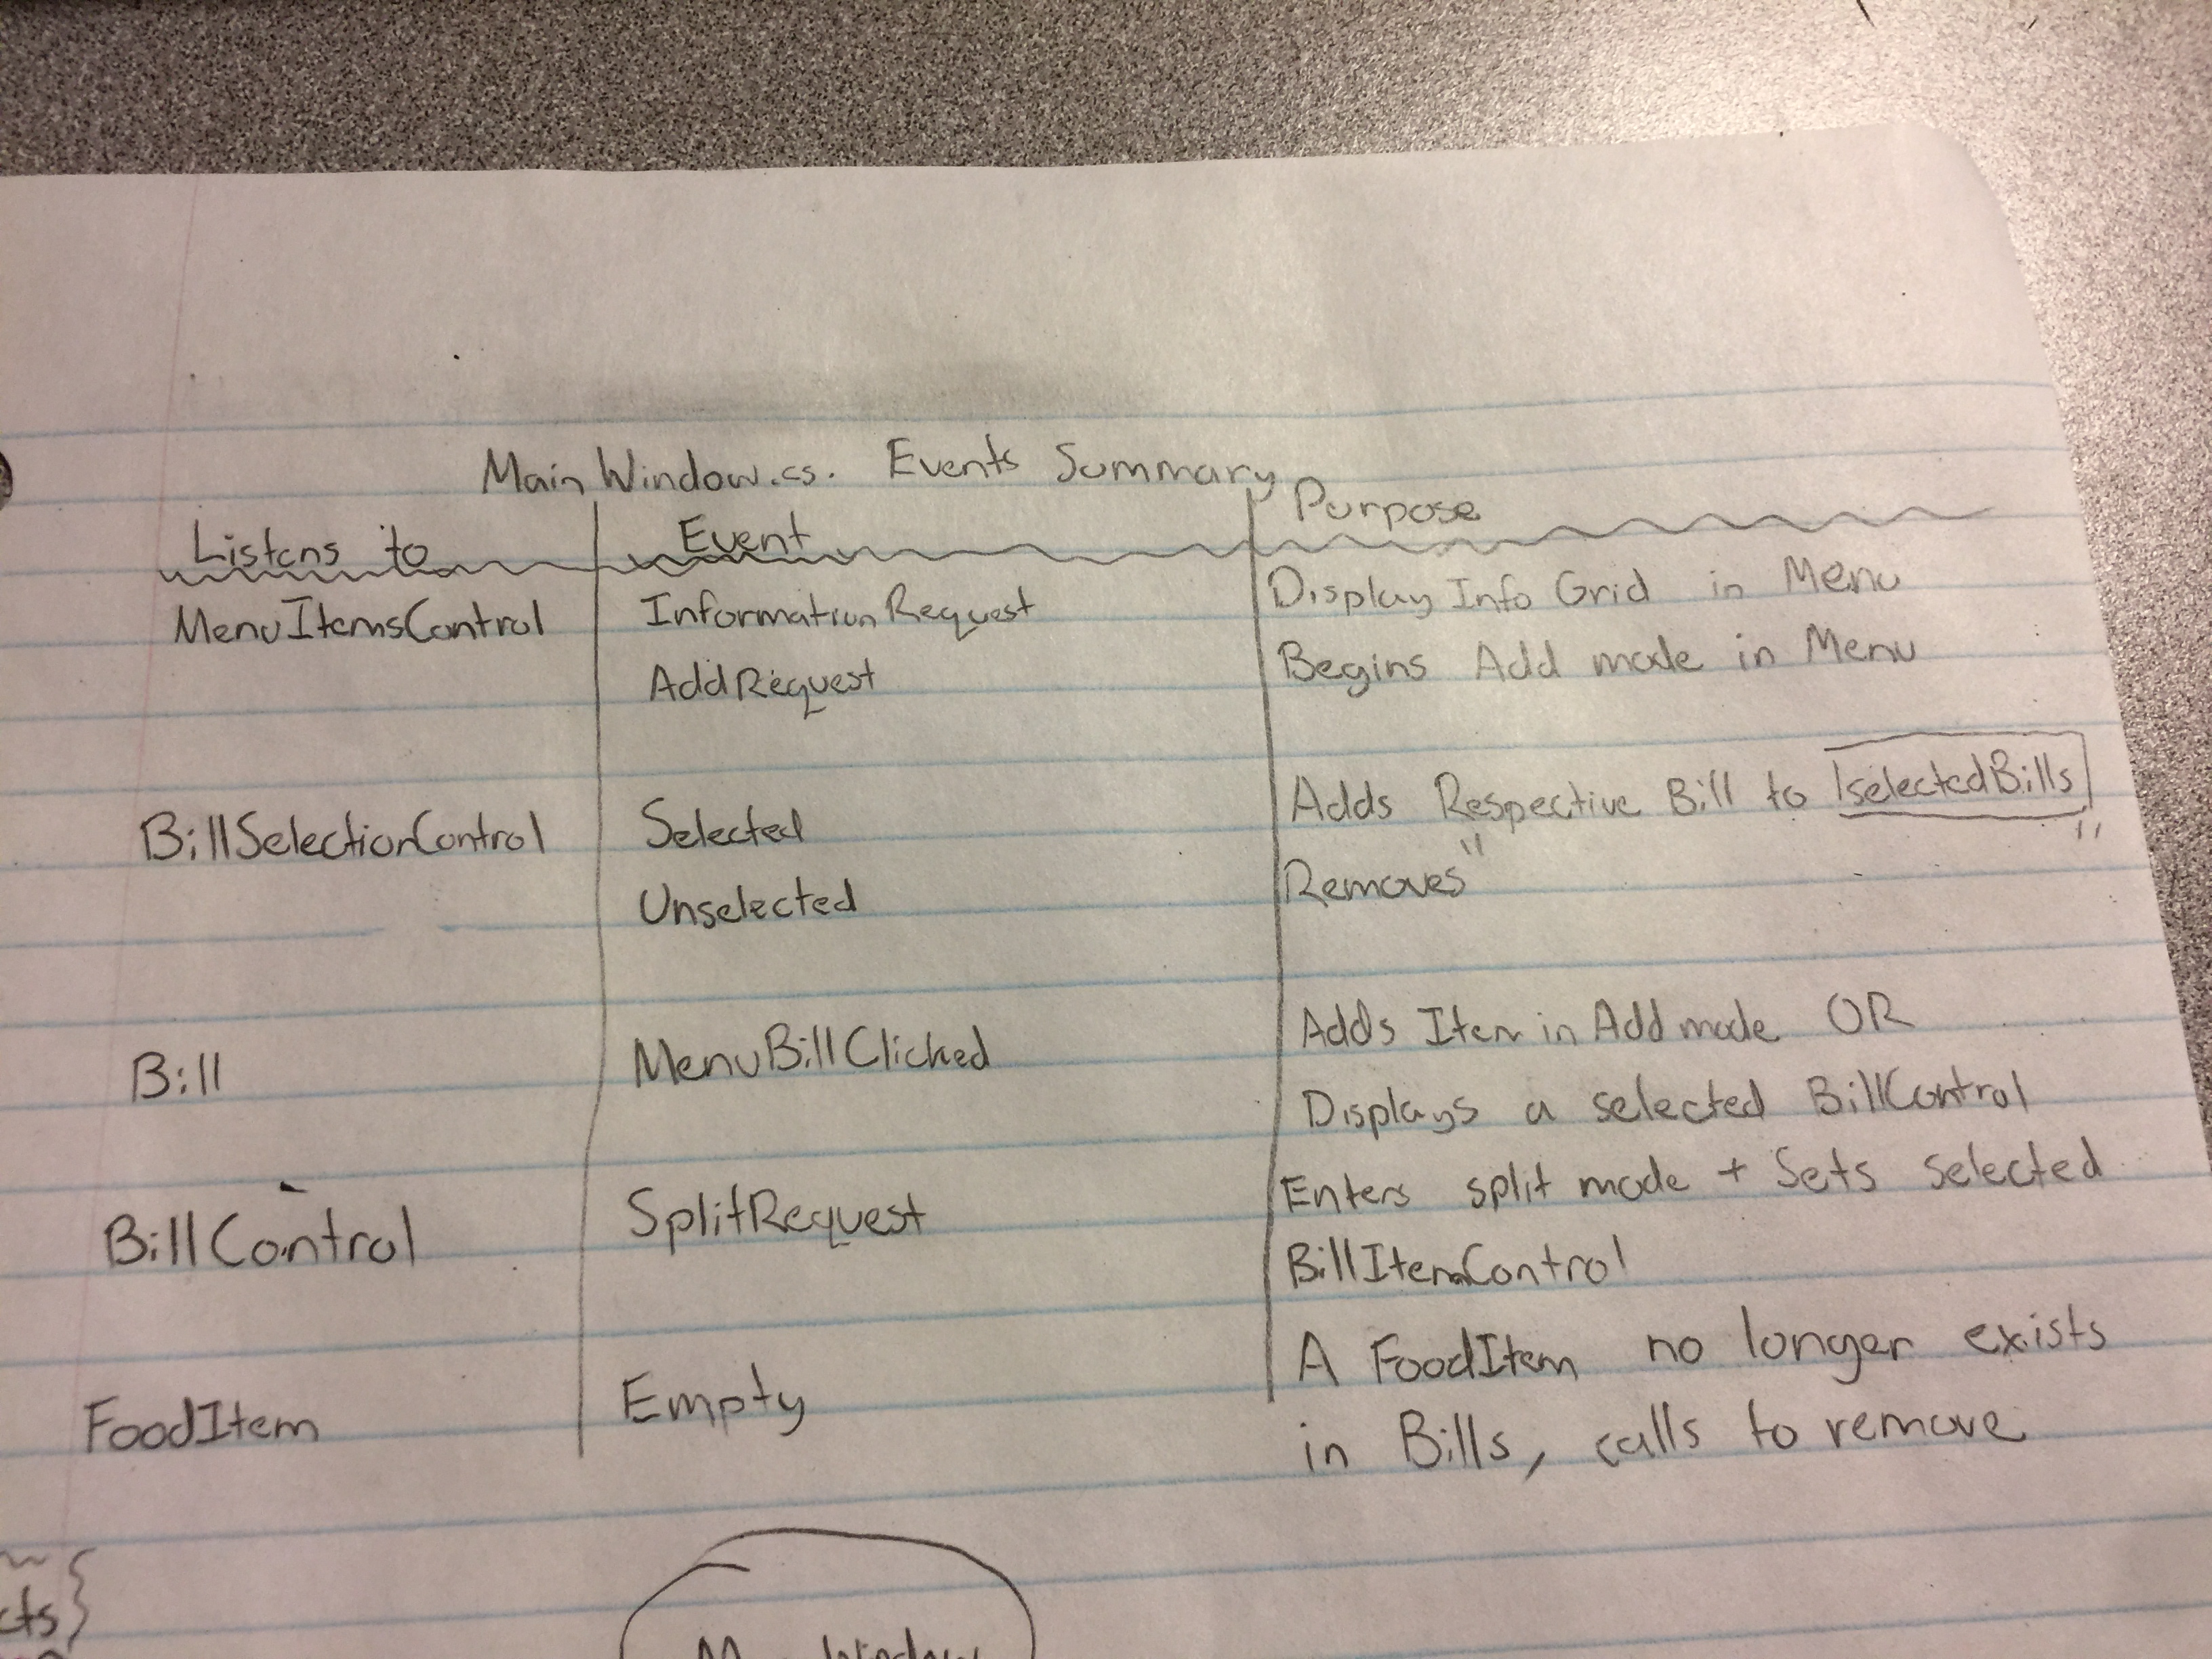 MainWindow.cs. Events Summary
Listens to Event Purpose
MenuItemsControl InformationRequest Display Info Grid in Menu
AddRequest Begins Add mode in Menu
BillSelectionControl Selected Adds Respective Bill to selectedBills
Unselected Removes " "
Bill MenuBillClicked Adds Item in Add mode OR
Displays a selected BillControl
BillControl SplitRequest Enters split mode + Sets selected
BillItemControl
FoodItem Empty A FoodItem no longer exists
in Bills, calls to remove
cts}